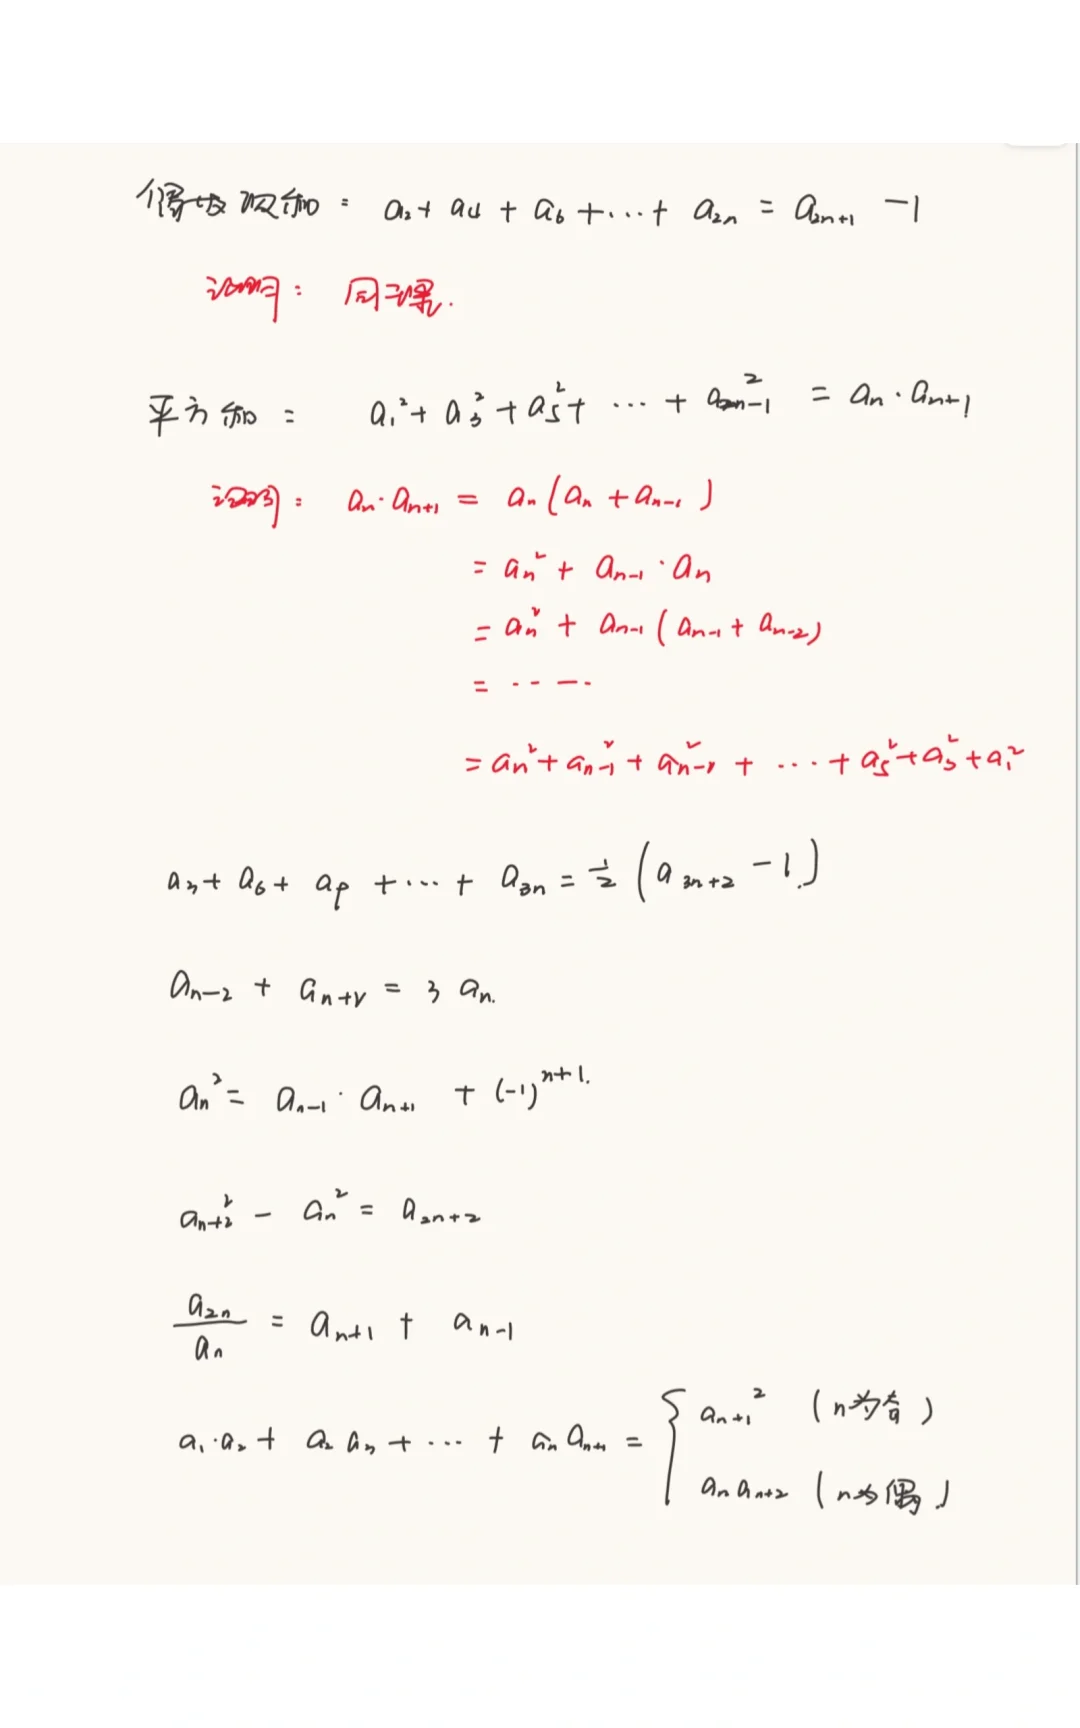 偶数项和: a₂ + a₄ + a₆ + ... + a₂ₙ = a₂ₙ₊₁ - 1
证明: 同理.
平方和: a₁² + a₃² + a₅² + ... + a₂ₙ₋₁² = aₙ · aₙ₊₁
证明: aₙ · aₙ₊₁ = aₙ(aₙ + aₙ₋₁)
= aₙ² + aₙ₋₁ · aₙ
= aₙ² + aₙ₋₁(aₙ₋₁ + aₙ₋₂)
= ......
= aₙ² + aₙ₋₁² + aₙ₋₂² + ... + a₅² + a₃² + a₁²
a₃ + a₆ + a₉ + ... + a₃ₙ = ½(a₃ₙ₊₂ - 1)
aₙ₋₂ + aₙ₊₂ = 3aₙ.
aₙ² = aₙ₋₁ · aₙ₊₁ + (-1)ⁿ⁺¹.
aₙ₊₂² - aₙ² = a₂ₙ₊₂
a₂ₙ/aₙ = aₙ₊₁ + aₙ₋₁
a₁ · a₂ + a₂a₃ + ... + aₙaₙ₊₁ = { aₙ₊₁² (n为奇)
aₙaₙ₊₂ (n为偶)